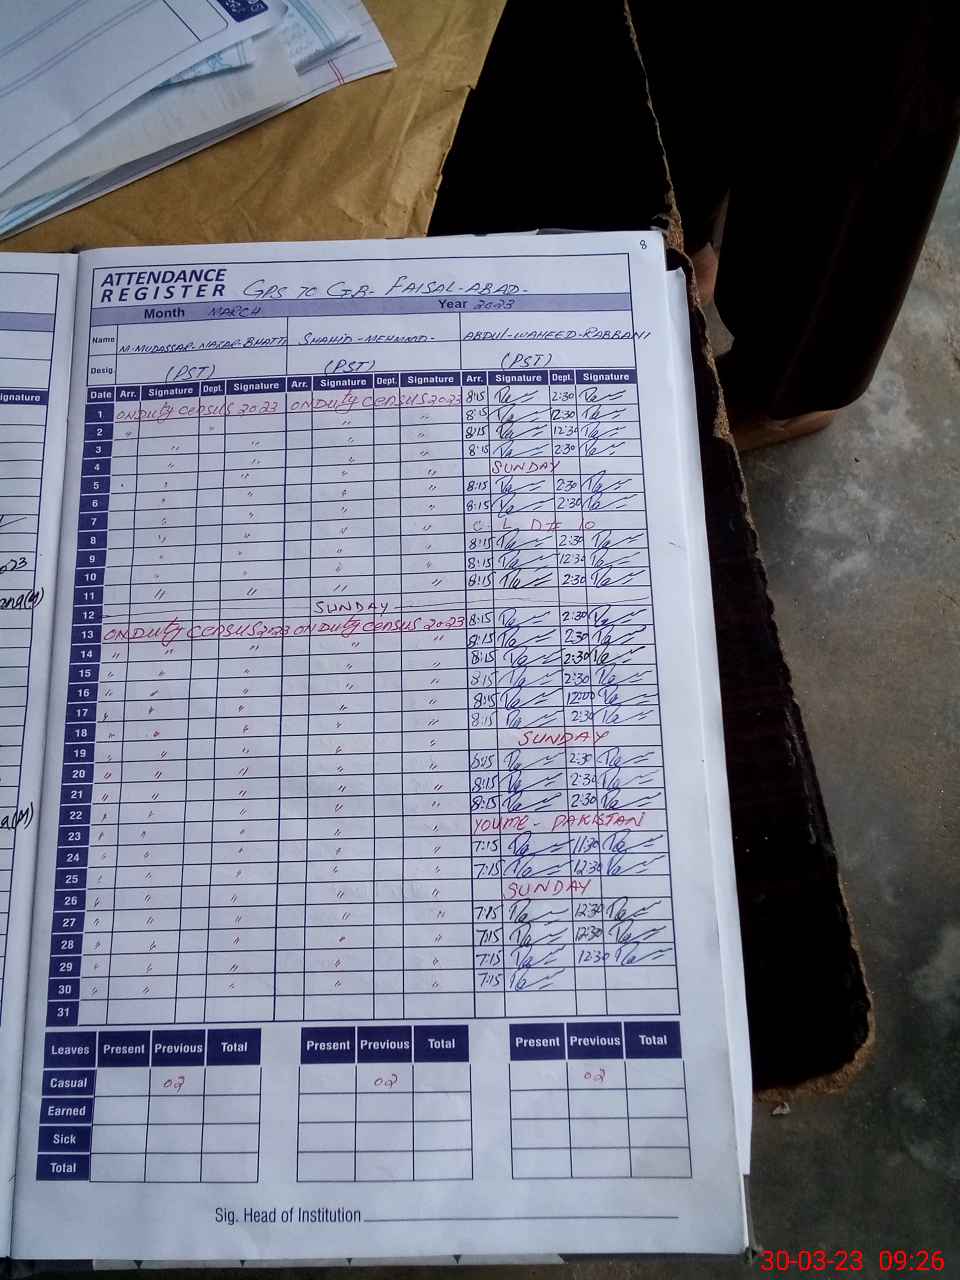 8
ATTENDANCE
REGISTER GPS 70 GB- FAISAL-ABAD-
Month MARCH Year 2023
Name M-MUDASSAR-NAZAR-BHATTI SHAHID-MEHMMD- ABDUL-WAHEED-RABBANI
Desig. (PST) (PST) (PST)
ignature Date Arr. Signature Dept. Signature Arr. Signature Dept. Signature Arr. Signature Dept. Signature
1 ONDUty CENSUS 2023 ONDUty CENSUS 2023 8:15 2:30
2 " " " " 8:15 12:30
3 " " " " 8:15 12:30
4 " " " " 8:15 2:30
5 " " " " SUNDAY
6 " " " " 8:15 2:30
7 " " " " 8:15 2:30
8 " " " " C-L D# 10
9 " " " " 8:15 2:30
10 " " " " 8:15 12:30
11 " " " " 8:15 2:30
12 SUNDAY
13 ONDUty CENSUS 2023 ONDUty CENSUS 2023 8:15 2:30
14 " " " " " 8:15 2:30
15 " " " " " 8:15 2:30
16 " " " " " 8:15 2:30
17 " " " " " 8:15 12:00
18 " " " " " 8:15 2:30
19 " " " " " SUNDAY
20 " " " " " 8:15 2:30
21 " " " " " 8:15 2:30
22 " " " " " 8:15 2:30
23 " " " " " YOUME-PAKISTAN
24 " " " " " 7:15 11:30
25 " " " " " 7:15 12:30
26 " " " " " SUNDAY
27 " " " " " 7:15 12:30
28 " " " " " 7:15 12:30
29 " " " " " 7:15 12:30
30 " " " " " 7:15
31
Leaves Present Previous Total Present Previous Total Present Previous Total
Casual 02 02 02
Earned
Sick
Total
Sig. Head of Institution
30-03-23 09:26